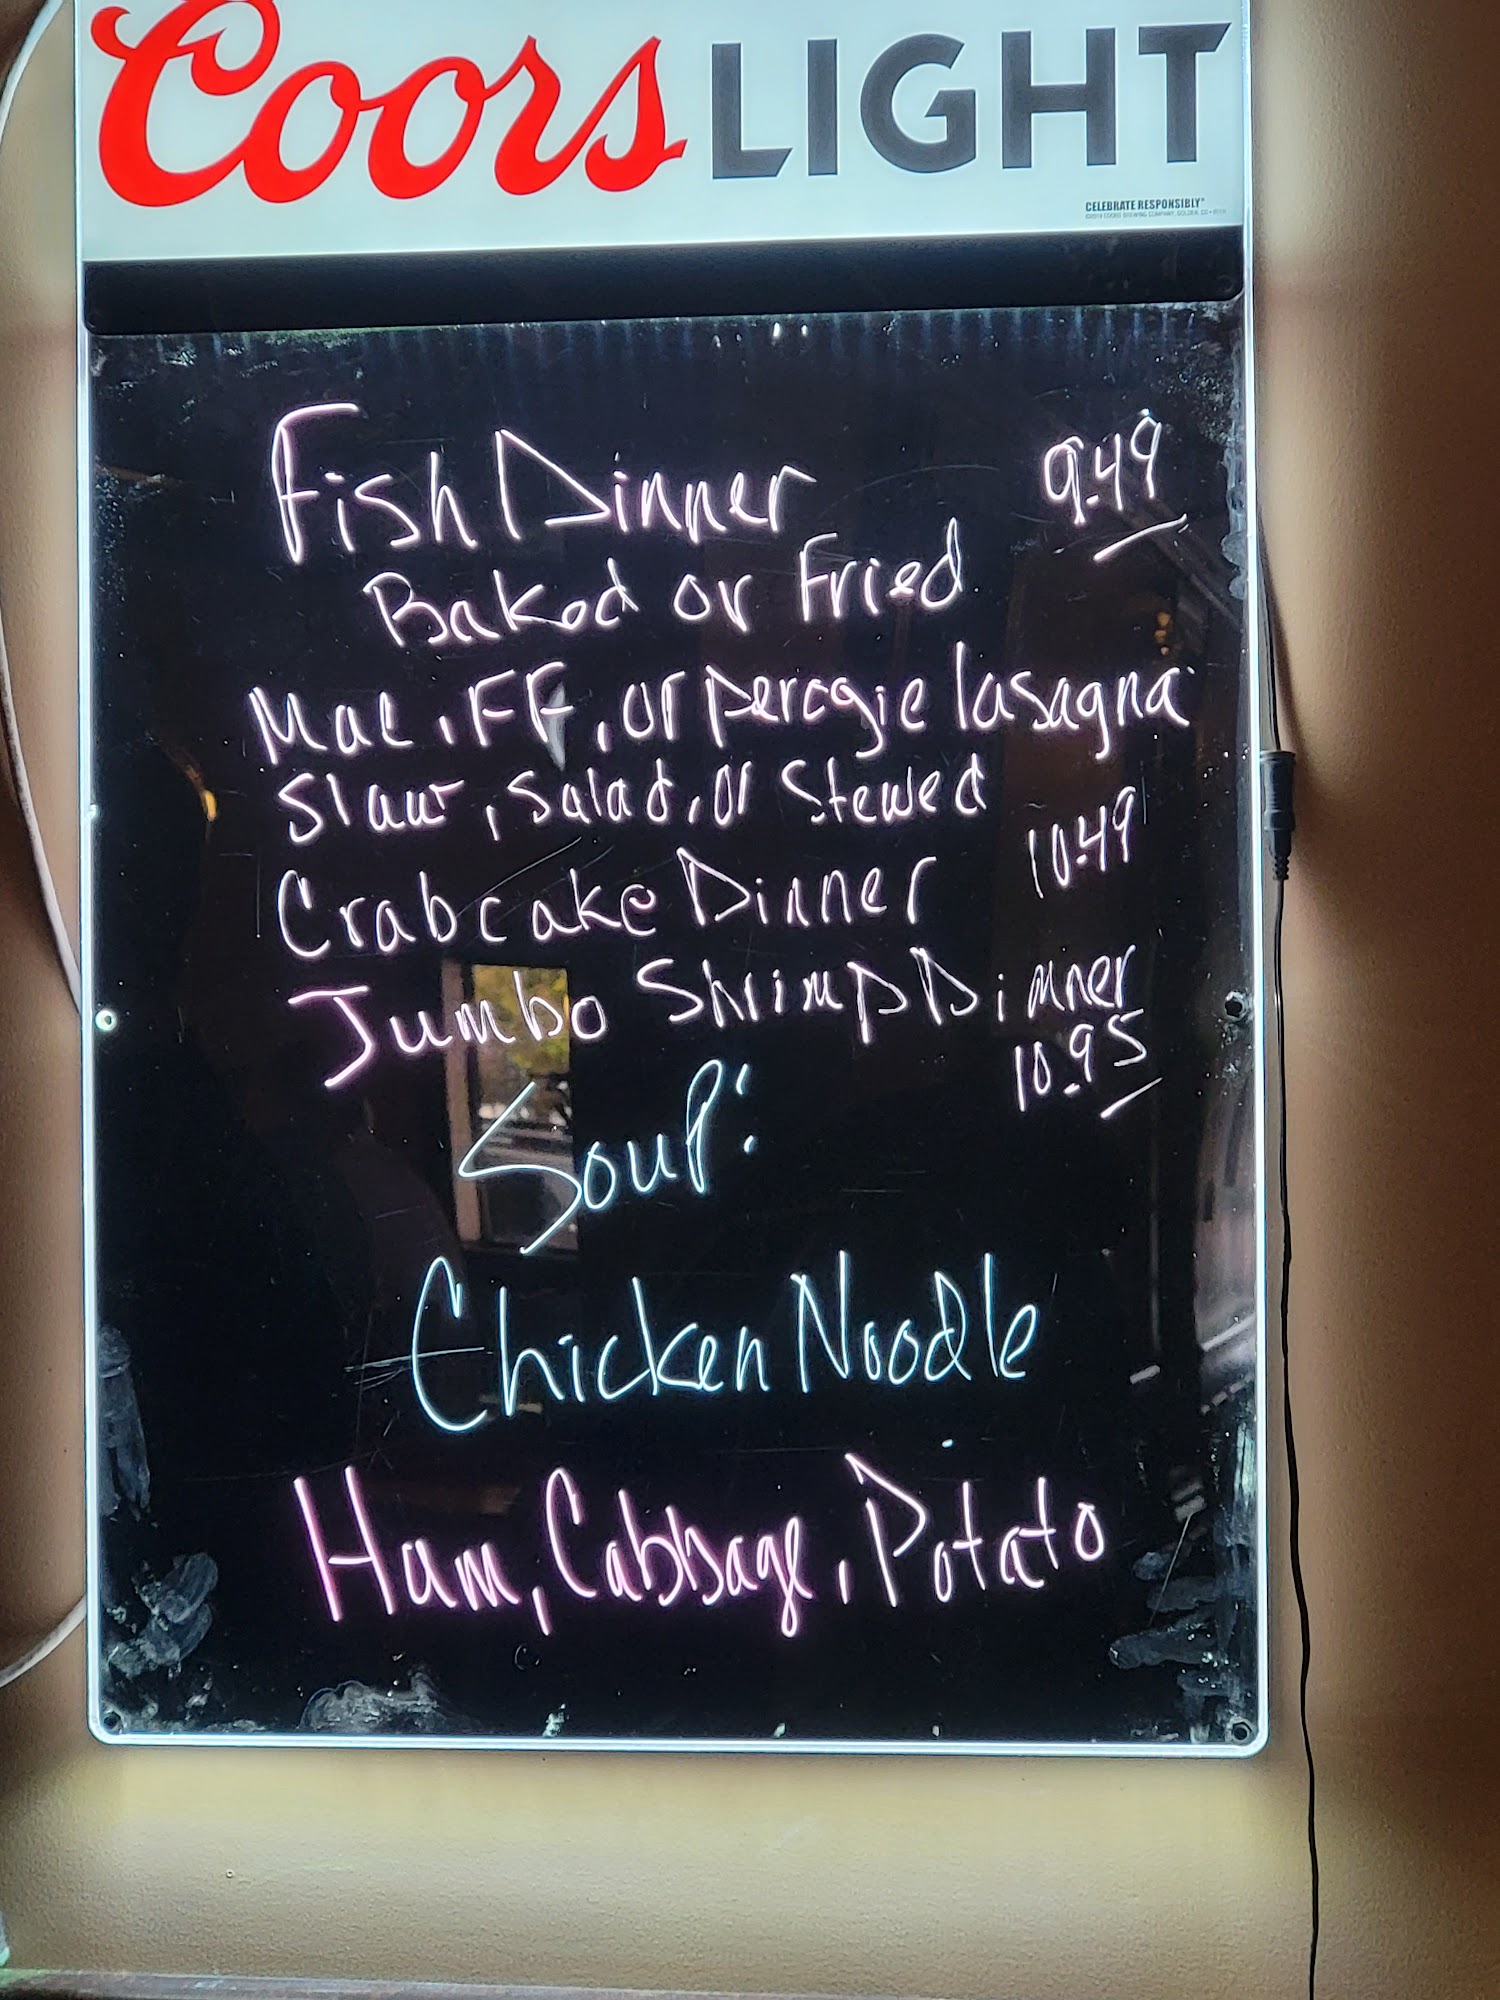 Coors LIGHT
CELEBRATE RESPONSIBLY®
Fish Dinner 9.49
Baked or Fried
Mac, FF, or perogie lasagna
Slaw, Salad, or Stewed
Crabcake Dinner 10.49
Jumbo Shrimp Dinner
10.95
Soup:
Chicken Noodle
Ham, Cabbage, Potato